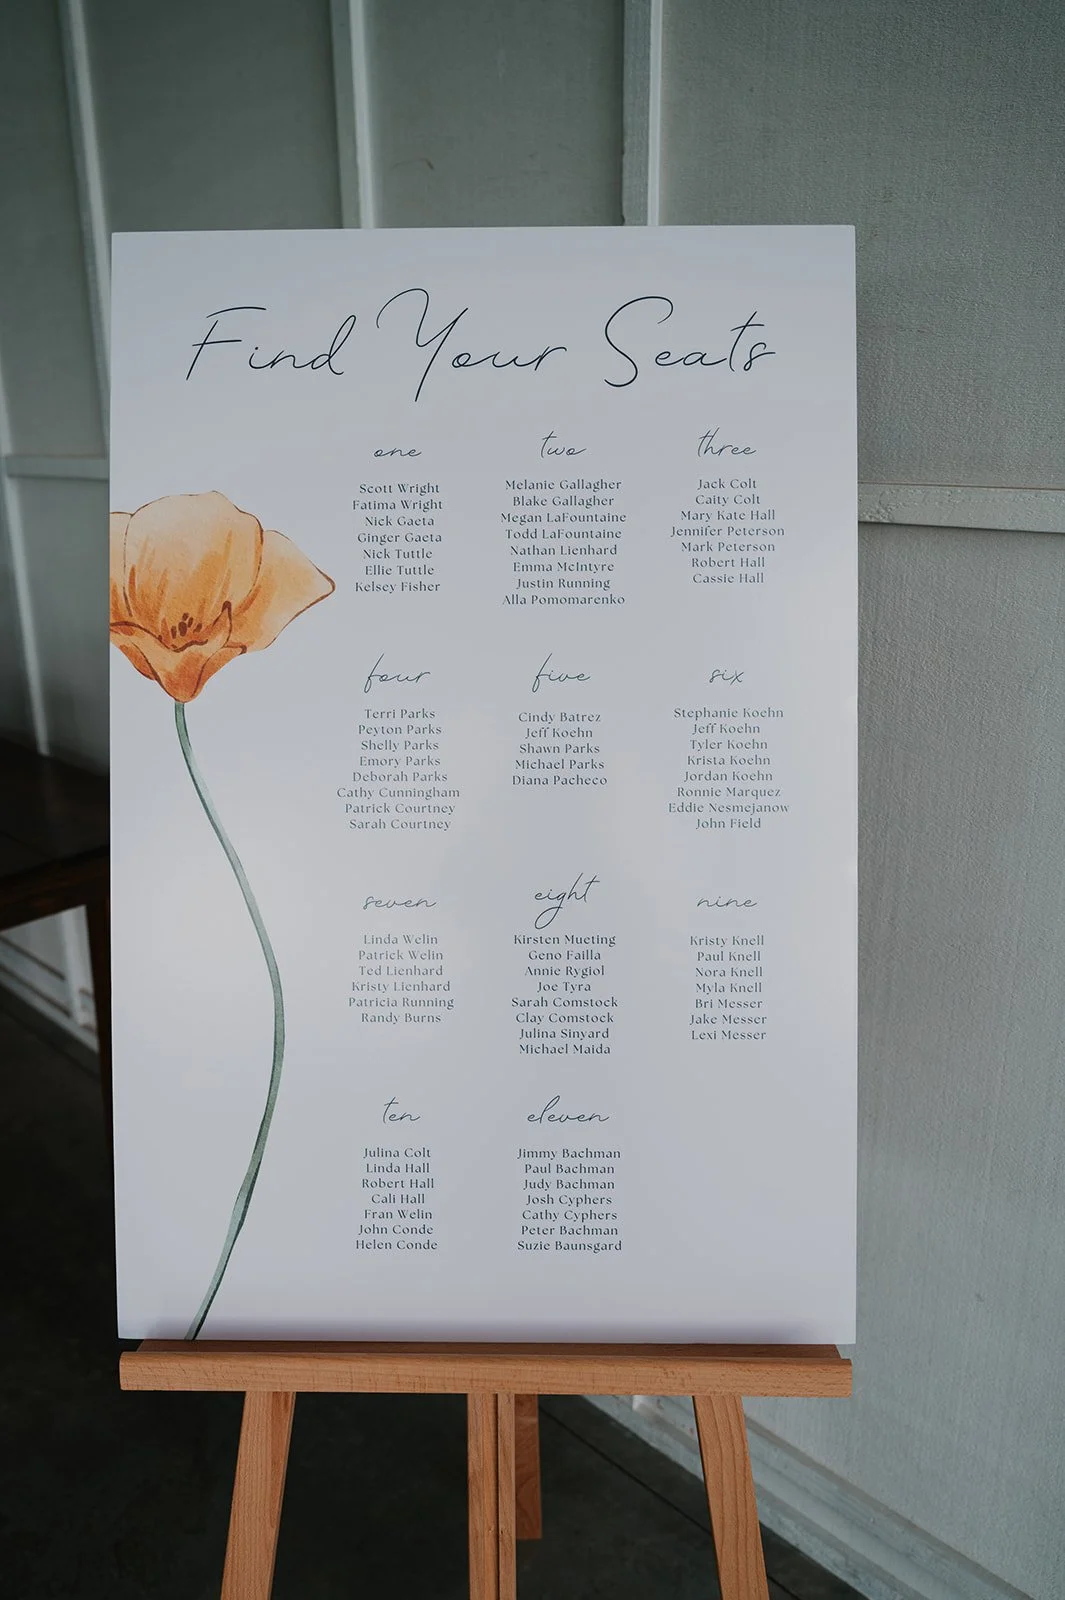 Find Your Seats
one
Scott Wright
Fatima Wright
Nick Gaeta
Ginger Gaeta
Nick Tuttle
Ellie Tuttle
Kelsey Fisher
two
Melanie Gallagher
Blake Gallagher
Megan LaFountaine
Todd LaFountaine
Nathan Lienhard
Emma McIntyre
Justin Running
Alla Pomomarenko
three
Jack Colt
Caity Colt
Mary Kate Hall
Jennifer Peterson
Mark Peterson
Robert Hall
Cassie Hall
four
Terri Parks
Peyton Parks
Shelly Parks
Emory Parks
Deborah Parks
Cathy Cunningham
Patrick Courtney
Sarah Courtney
five
Cindy Batrez
Jeff Koehn
Shawn Parks
Michael Parks
Diana Pacheco
six
Stephanie Koehn
Jeff Koehn
Tyler Koehn
Krista Koehn
Jordan Koehn
Ronnie Marquez
Eddie Nesmejanow
John Field
seven
Linda Welin
Patrick Welin
Ted Lienhard
Kristy Lienhard
Patricia Running
Randy Burns
eight
Kirsten Mueting
Geno Failla
Annie Rygiol
Joe Tyra
Sarah Comstock
Clay Comstock
Julina Sinyard
Michael Maida
nine
Kristy Knell
Paul Knell
Nora Knell
Myla Knell
Bri Messer
Jake Messer
Lexi Messer
ten
Julina Colt
Linda Hall
Robert Hall
Cali Hall
Fran Welin
John Conde
Helen Conde
eleven
Jimmy Bachman
Paul Bachman
Judy Bachman
Josh Cyphers
Cathy Cyphers
Peter Bachman
Suzie Baunsgard